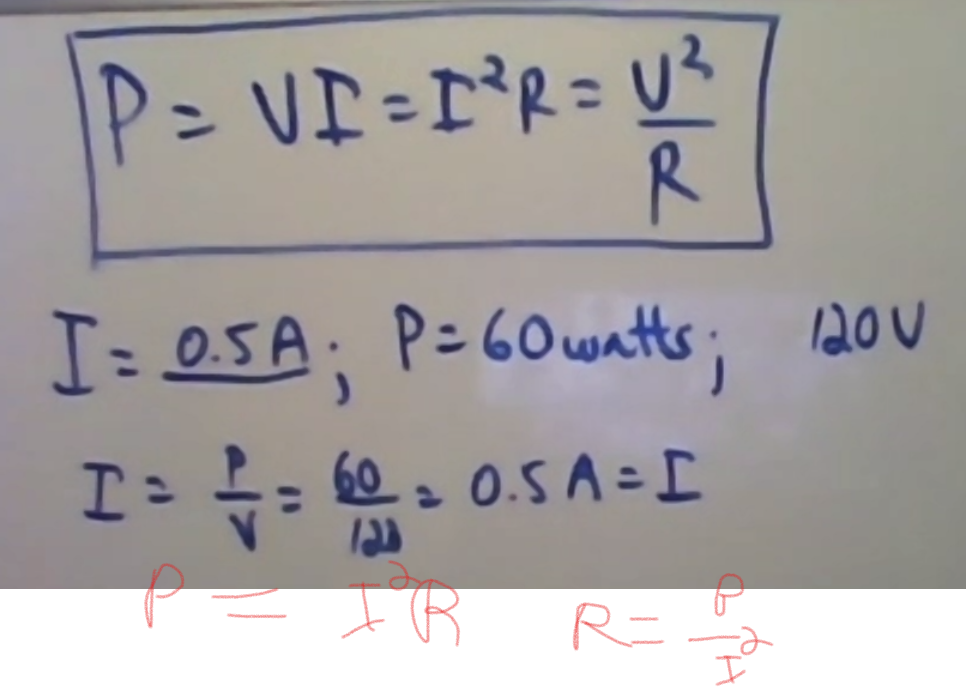 P = VI = I²R = V²/R
I = 0.5A; P = 60watts; 120V
I = P/V = 60/120 = 0.5A = I
P = I²R R = P/I²